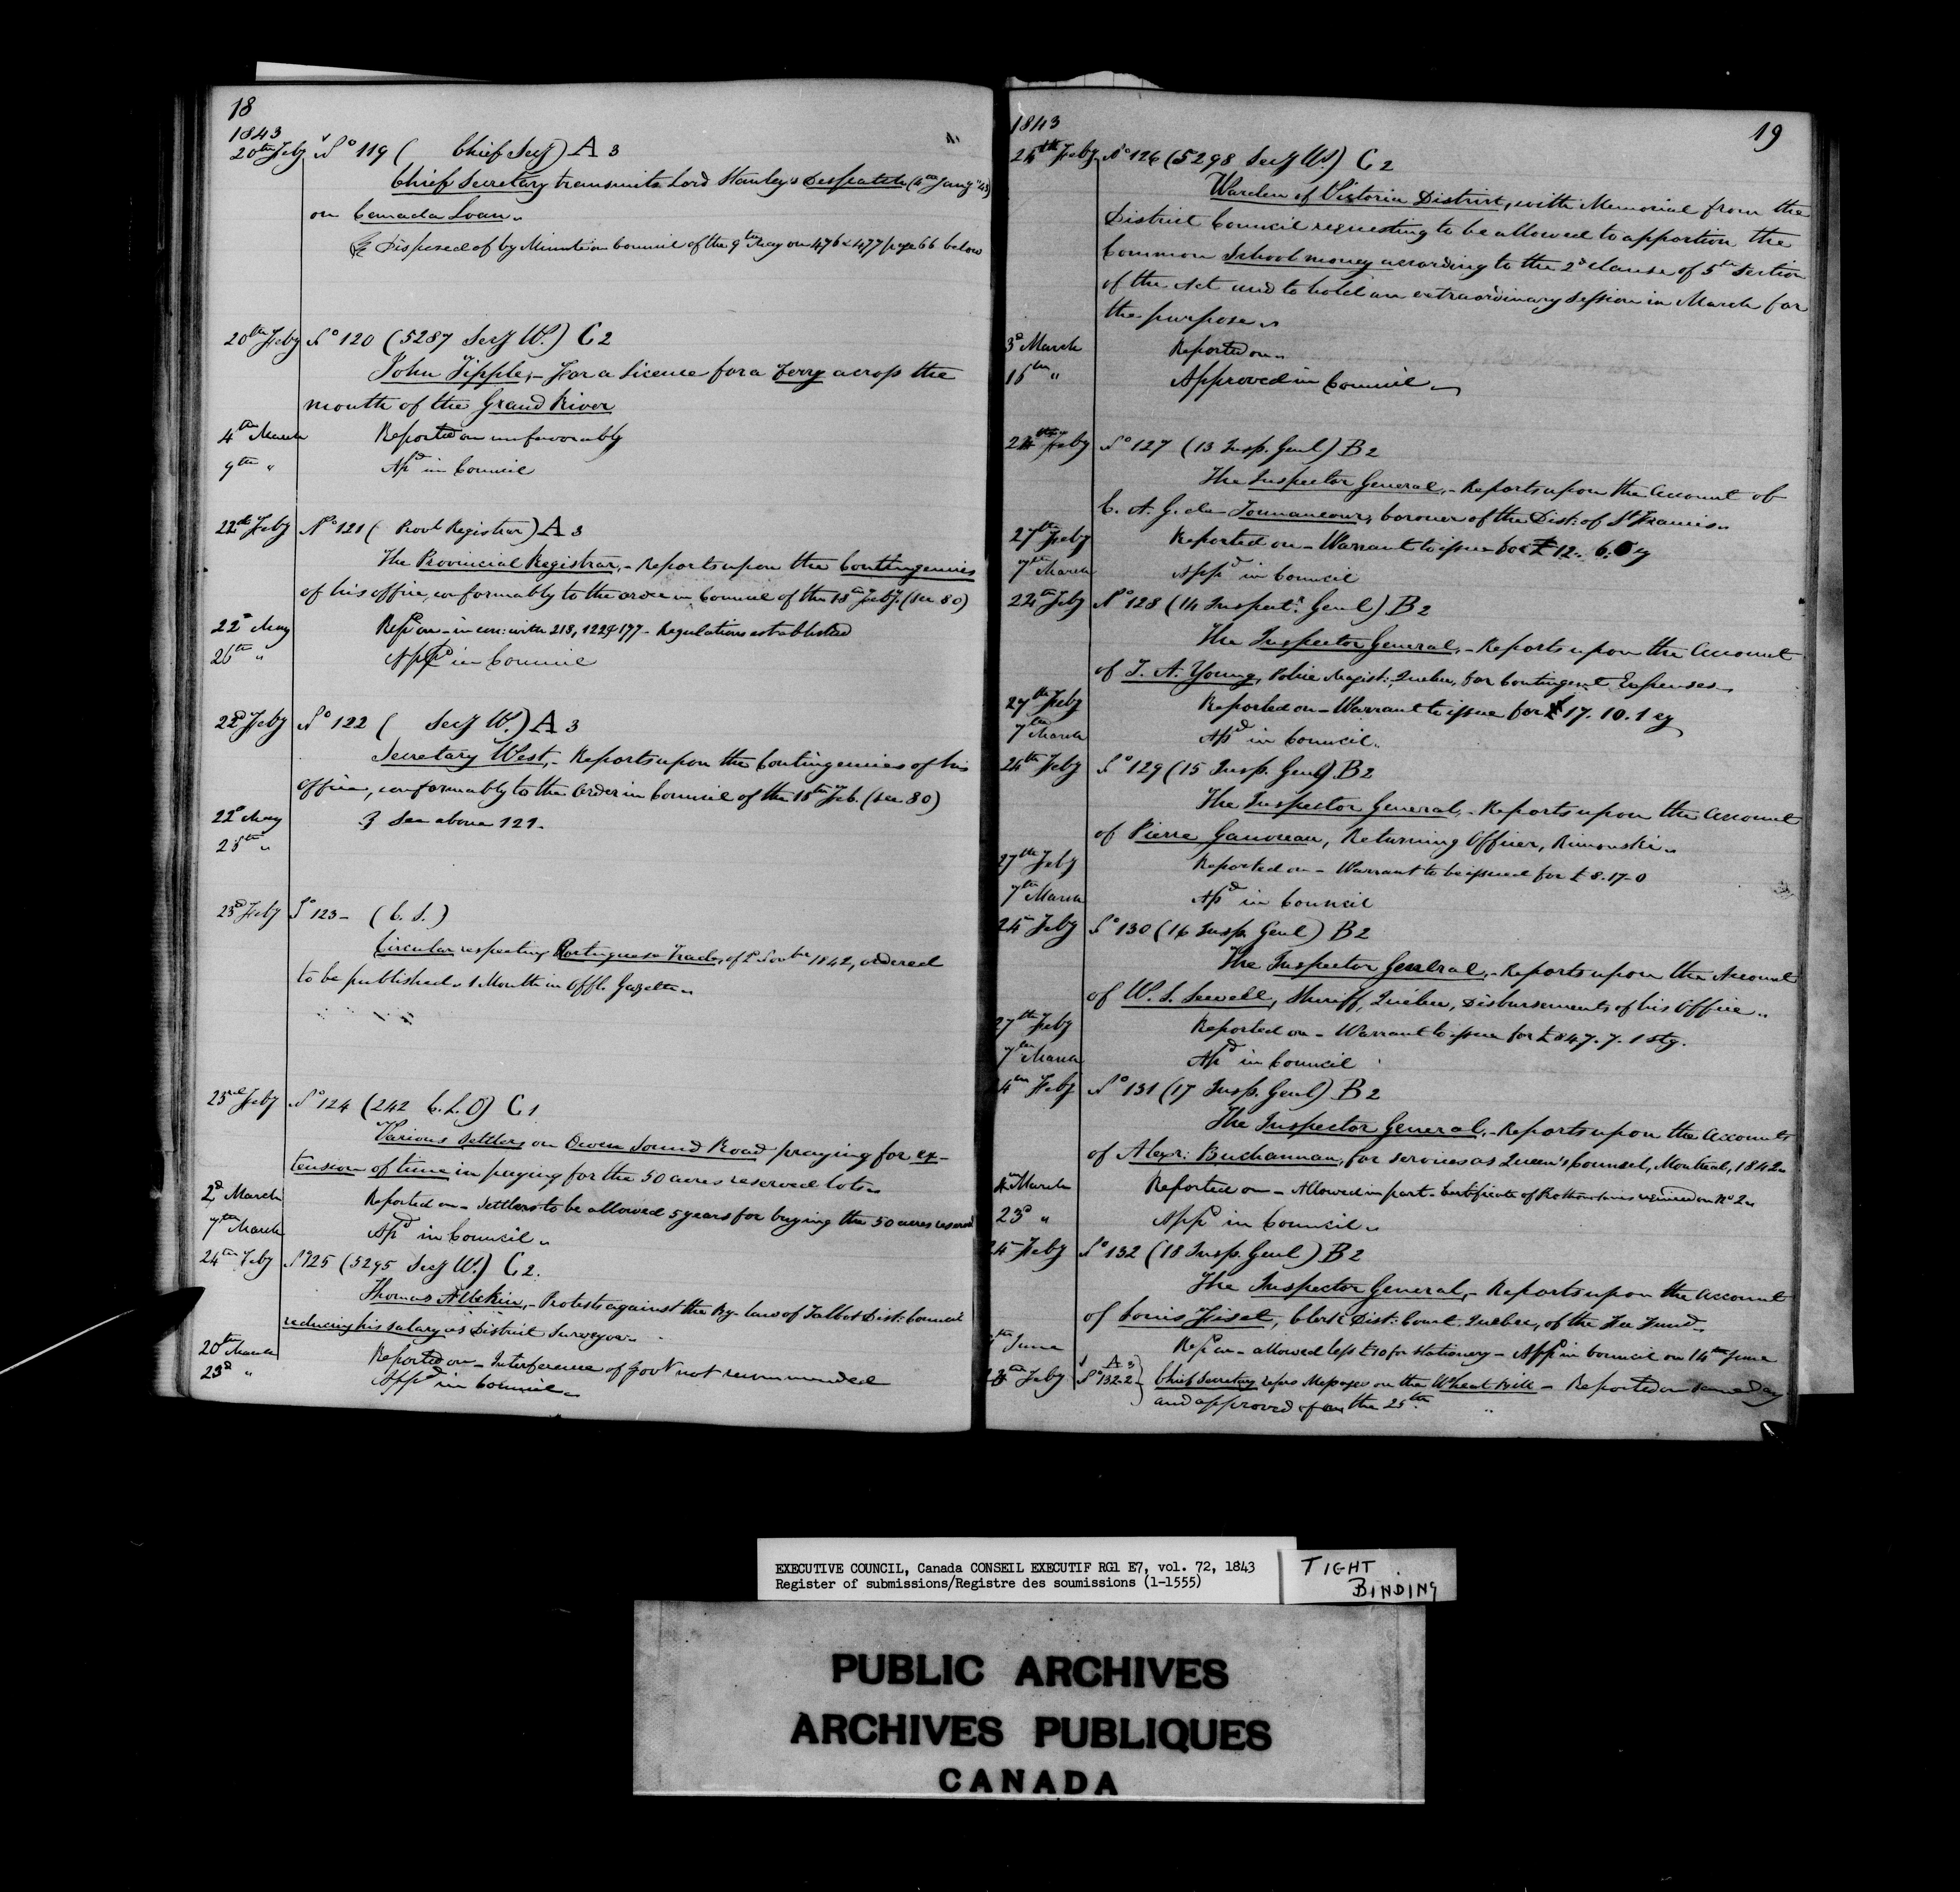 18
1843
20th Feby No 119 ( Chief Secy) A 3
Chief Secretary transmits Lord Stanley's Despatch (4th Jany '43)
on Canada Loan.
Disposed of by Minute in Council of the 9th May on 476 & 477 page 66 below
20th Feby No 120 (5287 Secy W.) C 2
John Tipple, - For a Licence for a Ferry across the
mouth of the Grand River
4th March Reported on unfavorably
9th " Apd in Council
22d Feby No 121 ( Provl Registrar) A 3
The Provincial Registrar, - Reports upon the Contingencies
of his office, conformably to the order in Council of the 18th Feby. (see 80)
22d May Repd on - in con: with 218, 122 & 177 - Regulations established
26th " Appd in Council
22d Feby No 122 ( Secy W.) A 3
Secretary West, - Reports upon the Contingencies of his
office, conformably to the Order in Council of the 18th Feb. (see 80)
22d May } See above 121.
25th "
23d Feby No 123 - (C. S.)
Circular respecting Portuguese Trade, of Novber 1842, ordered
to be published 1 Month in Offl. Gazette.
23rd Feby No 124 (242 C. L. O) C 1
Various Settlers on Owen Sound Road praying for ex-
tension of time in paying for the 50 acres reserved lots.
2d March Reported on - Settlers to be allowed 5 years for buying the 50 acres reserved
7th March Apd in Council "
24th Feby No 125 (5295 Secy W.) C 2.
Thomas - Protests against the By-law of Talbot Dist: Council
reducing his salary as District Surveyor.
20th March Reported on - Interference of Govt not recommended
23d " Appd in Council "
1843 19
24th Feby No 126 (5298 Secy W) C 2
Warden of Victoria District, with Memorial from the
District Council requesting to be allowed to apportion the
Common School money according to the 2d clause of 5th Section
of the Act and to hold an extraordinary session in March for
the purpose.
3d March Reported on "
15th " Approved in Council.
24th Feby No 127 (13 Insp. Genl) B 2
The Inspector General, - Reports upon the Account of
C. A. G. de Tonnancour, Coroner of the Dist: of St Francis.
27th Feby Reported on - Warrant to issue for £12. 6.
7th March Appd in Council
24th Feby No 128 (14 Inspectr Genl) B 2
The Inspector General, - Reports upon the Account
of T. A. Young, Police Magist: Quebec, for Contingent Expenses.
27th Feby Reported on - Warrant to issue for £17. 10. 1 cy
7th March Apd in Council.
24th Feby No 129 (15 Insp. Genl) B 2
The Inspector General, - Reports upon the Account
of Pierre Gauvreau, Returning Officer, Rimouski.
27th Feby Reported on - Warrant to be issued for £8-17-0
7th March Apd in Council
24 Feby No 130 (16 Insp. Genl) B 2
The Inspector General, - Reports upon the Account
of W. S. Sewell, Sheriff, Quebec, Disbursements of his Office.
27th Feby Reported on - Warrant to issue for £847. 7. 1 stg.
7th March Apd in Council
4th Feby No 131 (17 Insp. Genl) B 2
The Inspector General, - Reports upon the Accounts
of Alexr: Buchannan, for services as Queen's Counsel, Montreal, 1842.
March Reported on - Allowed in part - Certificate of Prothonotaries required on No 2.
23d " Appd in Council.
24 Feby No 132 (18 Insp. Genl) B 2
The Inspector General, - Reports upon the Account
of Louis Fiset, Clerk Dist: Court Quebec, of the Fee Fund.
June Repd on - allowed less £10 for Stationery - Appd in Council on 14th June
Feby No 132-2 A 3 } Chief Secretary refers Message on the Wheat Bill - Reported on same day
and approved of on the 25th
EXECUTIVE COUNCIL, Canada CONSEIL EXECUTIF RG1 E7, vol. 72, 1843
Register of submissions/Registre des soumissions (1-1555)
TIGHT
BINDING
PUBLIC ARCHIVES
ARCHIVES PUBLIQUES
CANADA